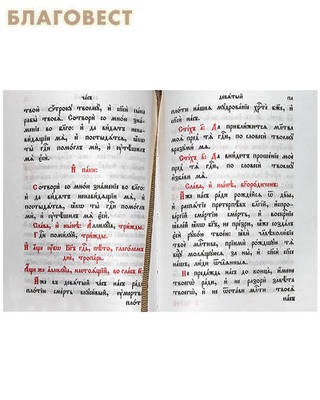 БЛАГОВЕСТ
ча́съ
твоѝ ѻ҆́троку твоемꙋ̀, и҆ спⷭ҇ѝ сы́на
рабы̀ твоеѧ̀. Сотворѝ со мно́ю зна́-
меніе во бл҃го: и҆ да ви́дѧтъ нена-
ви́дѧщіи мѧ̀, и҆ постыдѧ́тсѧ, ꙗ҆́кѡ
ты̀ гдⷭ҇и помо́глъ мѝ, и҆ ᲂу҆тѣ́шилъ
мѧ̀ є҆сѝ.
И҆ па́ки:
Сотворѝ со мно́ю зна́меніе во бл҃го:
и҆ да ви́дѧтъ ненави́дѧщіи мѧ̀, и҆
постыдѧ́тсѧ, ꙗ҆́кѡ ты̀ гдⷭ҇и помо́глъ
мѝ, и҆ ᲂу҆тѣ́шилъ мѧ̀ є҆сѝ.
Сла́ва, и҆ ны́нѣ: А҆ллилꙋ́їа, три́жды.
Гдⷭ҇и поми́лꙋй, три́жды.
И҆ а҆́ще ᲂу҆́бѡ бг҃ъ гдⷭ҇ь, пѣ́то, глаго́лемъ
тропа́рь.
А҆́ще же а҆ллилꙋ́їа, настоѧ́щїй, во гла́съ и҃:
И҆́же въ девѧ́тый ча́съ на́съ ра́ди
пло́тїю сме́рть вкꙋси́вый, ᲂу҆мертвѝ
пло́ти
девѧ́тый
пло́ти на́шеѧ мꙋдрова́нїе хрⷭ҇тѐ бж҃е, и҆
спасѝ на́съ.
Сті́хъ а҃: Да прибли́житсѧ мл҃тва
моѧ̀ пред̾ тѧ̀ гдⷭ҇и, по словесѝ твоемꙋ̀
вразꙋмѝ мѧ̀.
Сті́хъ в҃: Да вни́детъ проше́нїе моѐ
пред̾ тѧ̀ гдⷭ҇и, по словесѝ твоемꙋ̀
и҆зба́ви мѧ̀.
Сла́ва, и҆ ны́нѣ, бг҃оро́диченъ:
И҆́же на́съ ра́ди рожде́йсѧ ѿ дв҃ы,
и҆ распѧ́тїе претерпѣ́въ бл҃гі́й, и҆спро-
ве́ргїй сме́ртїю сме́рть, и҆ воскрⷭ҇нїе
ꙗ҆вле́й ꙗ҆́кѡ бг҃ъ, не пре́зри, ꙗ҆̀же созда́лъ
є҆сѝ рꙋко́ю твое́ю: ꙗ҆вѝ человѣколю́бїе
твоѐ млⷭ҇тиве, прїимѝ ро́ждшꙋю тѧ̀
бц҃ꙋ молѧ́щꙋюсѧ за ны̀, и҆ спасѝ сп҃се
на́шъ, лю́ди ѿча́ѧнныѧ.
Не преда́ждь на́съ до конца̀, и҆́мене
твоегѡ̀ ра́ди, и҆ не разорѝ завѣ́та
твоегѡ̀, и҆ не ѿста́ви мл҃ти твоеѧ̀ ѿ
на́съ